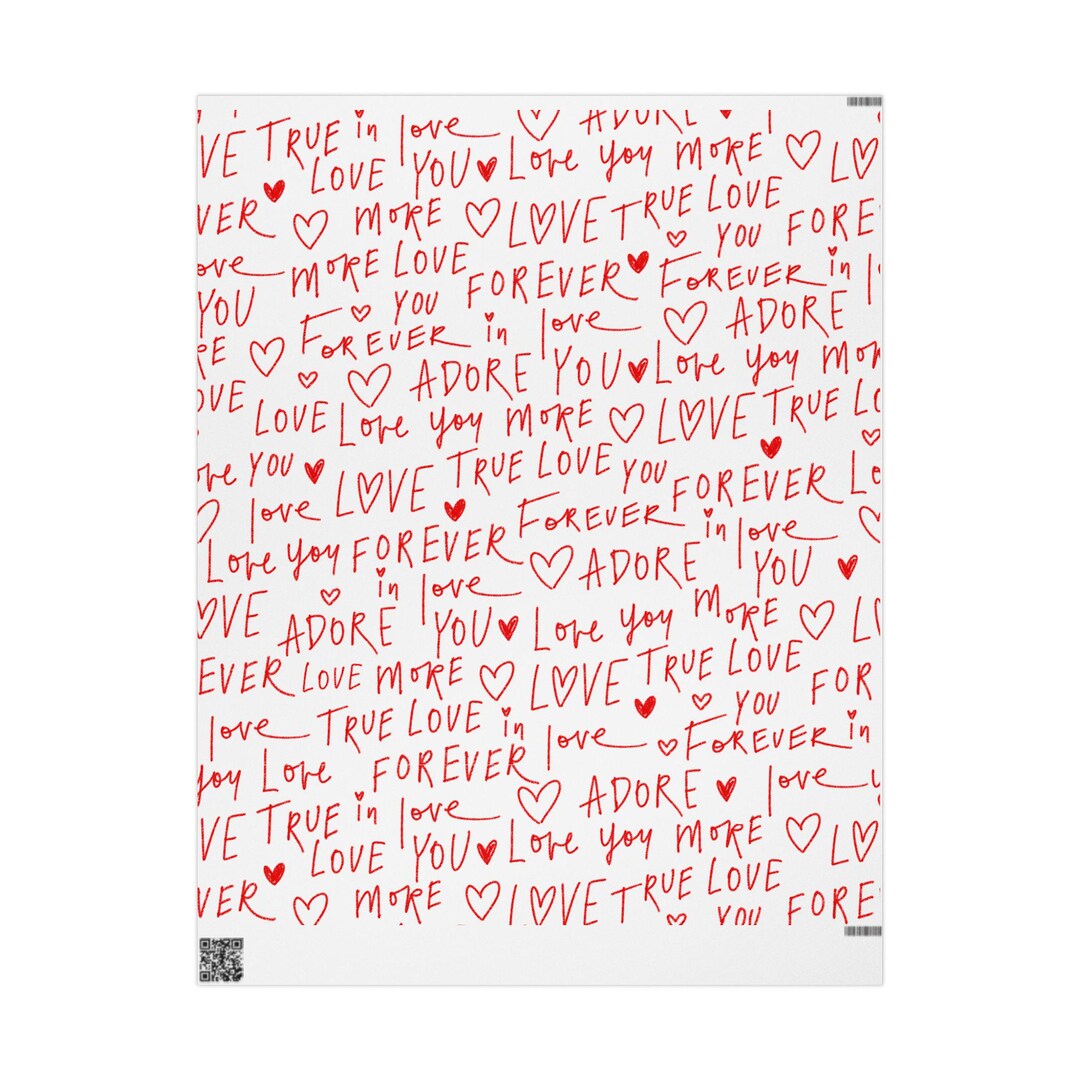 VE TRUE in love ADORE
LOVE YOU Love you MORE LO
VER MORE LOVE TRUE LOVE
ove MORE LOVE YOU FORE
YOU YOU FOREVER FOREVER in l
RE FOREVER in love ADORE
OVE ADORE YOU Love you MOR
LOVE Love you MORE LOVE TRUE LO
ove YOU LOVE TRUE LOVE YOU FOREVER Lo
love FOREVER in love
Love you FOREVER ADORE YOU
OVE ADORE in love YOU Love you MORE LO
EVER LOVE MORE LOVE TRUE LOVE FOR
love TRUE LOVE in love YOU FOREVER in
you Love FOREVER ADORE love y
VE TRUE in love Love you MORE LO
LOVE YOU
VER MORE LOVE TRUE LOVE
YOU FORE